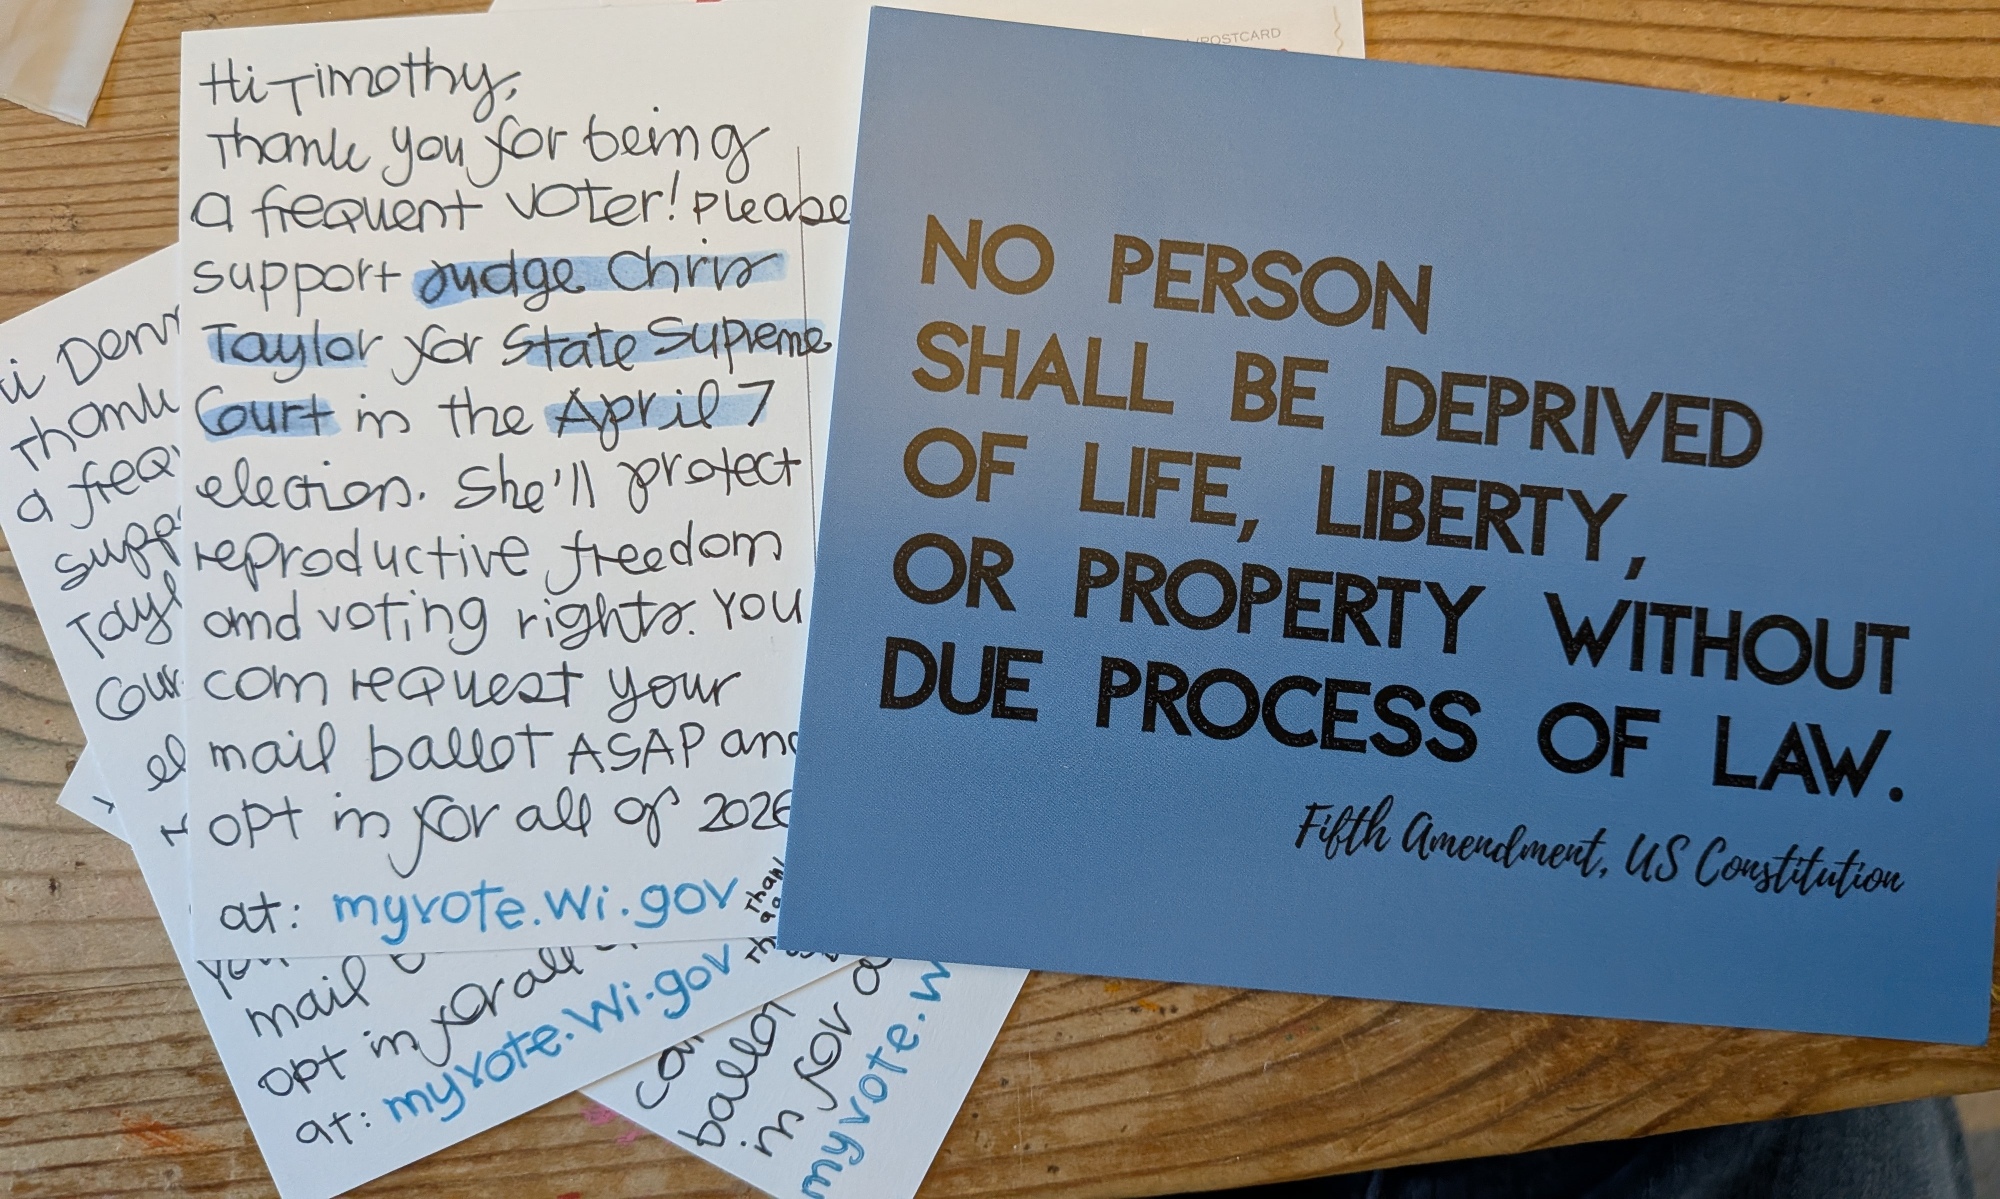 Hi Timothy,
Thank you for being
a frequent voter! Please
support Judge Chris
Taylor for State Supreme
Court in the April 7
election. She'll protect
reproductive freedom
and voting rights. You
can request your
mail ballot ASAP and
opt in for all of 2026
at: myvote.wi.gov
NO PERSON
SHALL BE DEPRIVED
OF LIFE, LIBERTY,
OR PROPERTY WITHOUT
DUE PROCESS OF LAW.
Fifth Amendment, US Constitution
POSTCARD
Thank
a freq
supp
Tayl
Cour
el
you
mail
opt in for all
at: myvote.wi.gov
ballot
in for
myvote.w